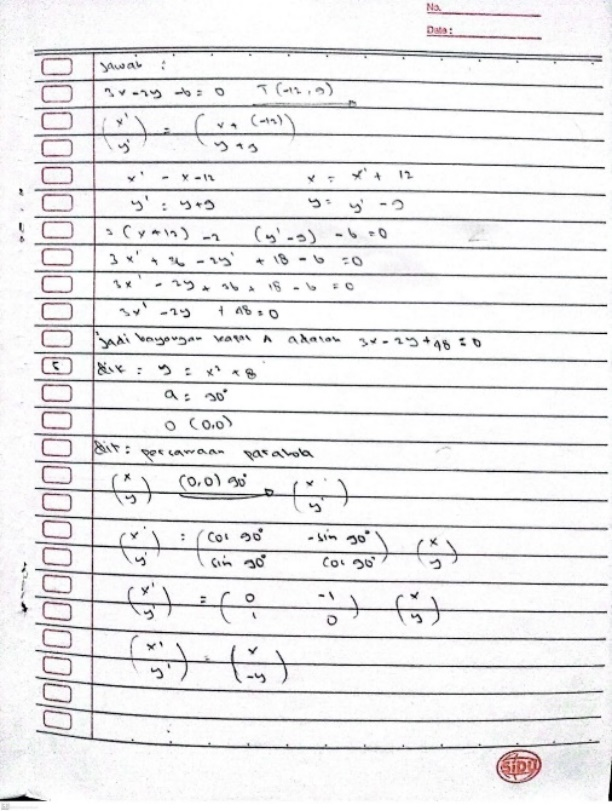 No.
Date :
Jawab :
3x - 2y - 6 = 0 T (-12, 9)
(x' y') = (x + (-12) y + 9)
x' - x - 12 x = x' + 12
y' : y + 9 y = y' - 9
= (x + 12) - 2 (y' - 9) - 6 = 0
3x' + 36 - 2y' + 18 - 6 = 0
3x' - 2y + 36 + 18 - 6 = 0
3x' - 2y + 48 = 0
Jadi bayangan A adalah 3x - 2y + 48 = 0
5 dik : y = x² + 8
a : 90°
O (0,0)
dit : persamaan parabola
(x y) (0,0) 90° (x' y')
(x' y') : (cos 90° - sin 90° sin 90° cos 90°) (x y)
(x' y') = (0 -1 1 0) (x y)
(x' y') = (x -y)
SIDU